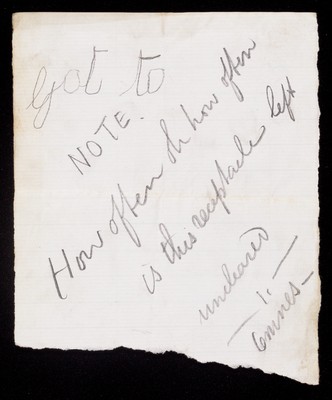 Got to
NOTE.
How often oh how often
is this receptacle left
uncleared